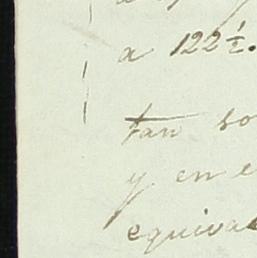 a 122½.
tan so
y en e
equiva